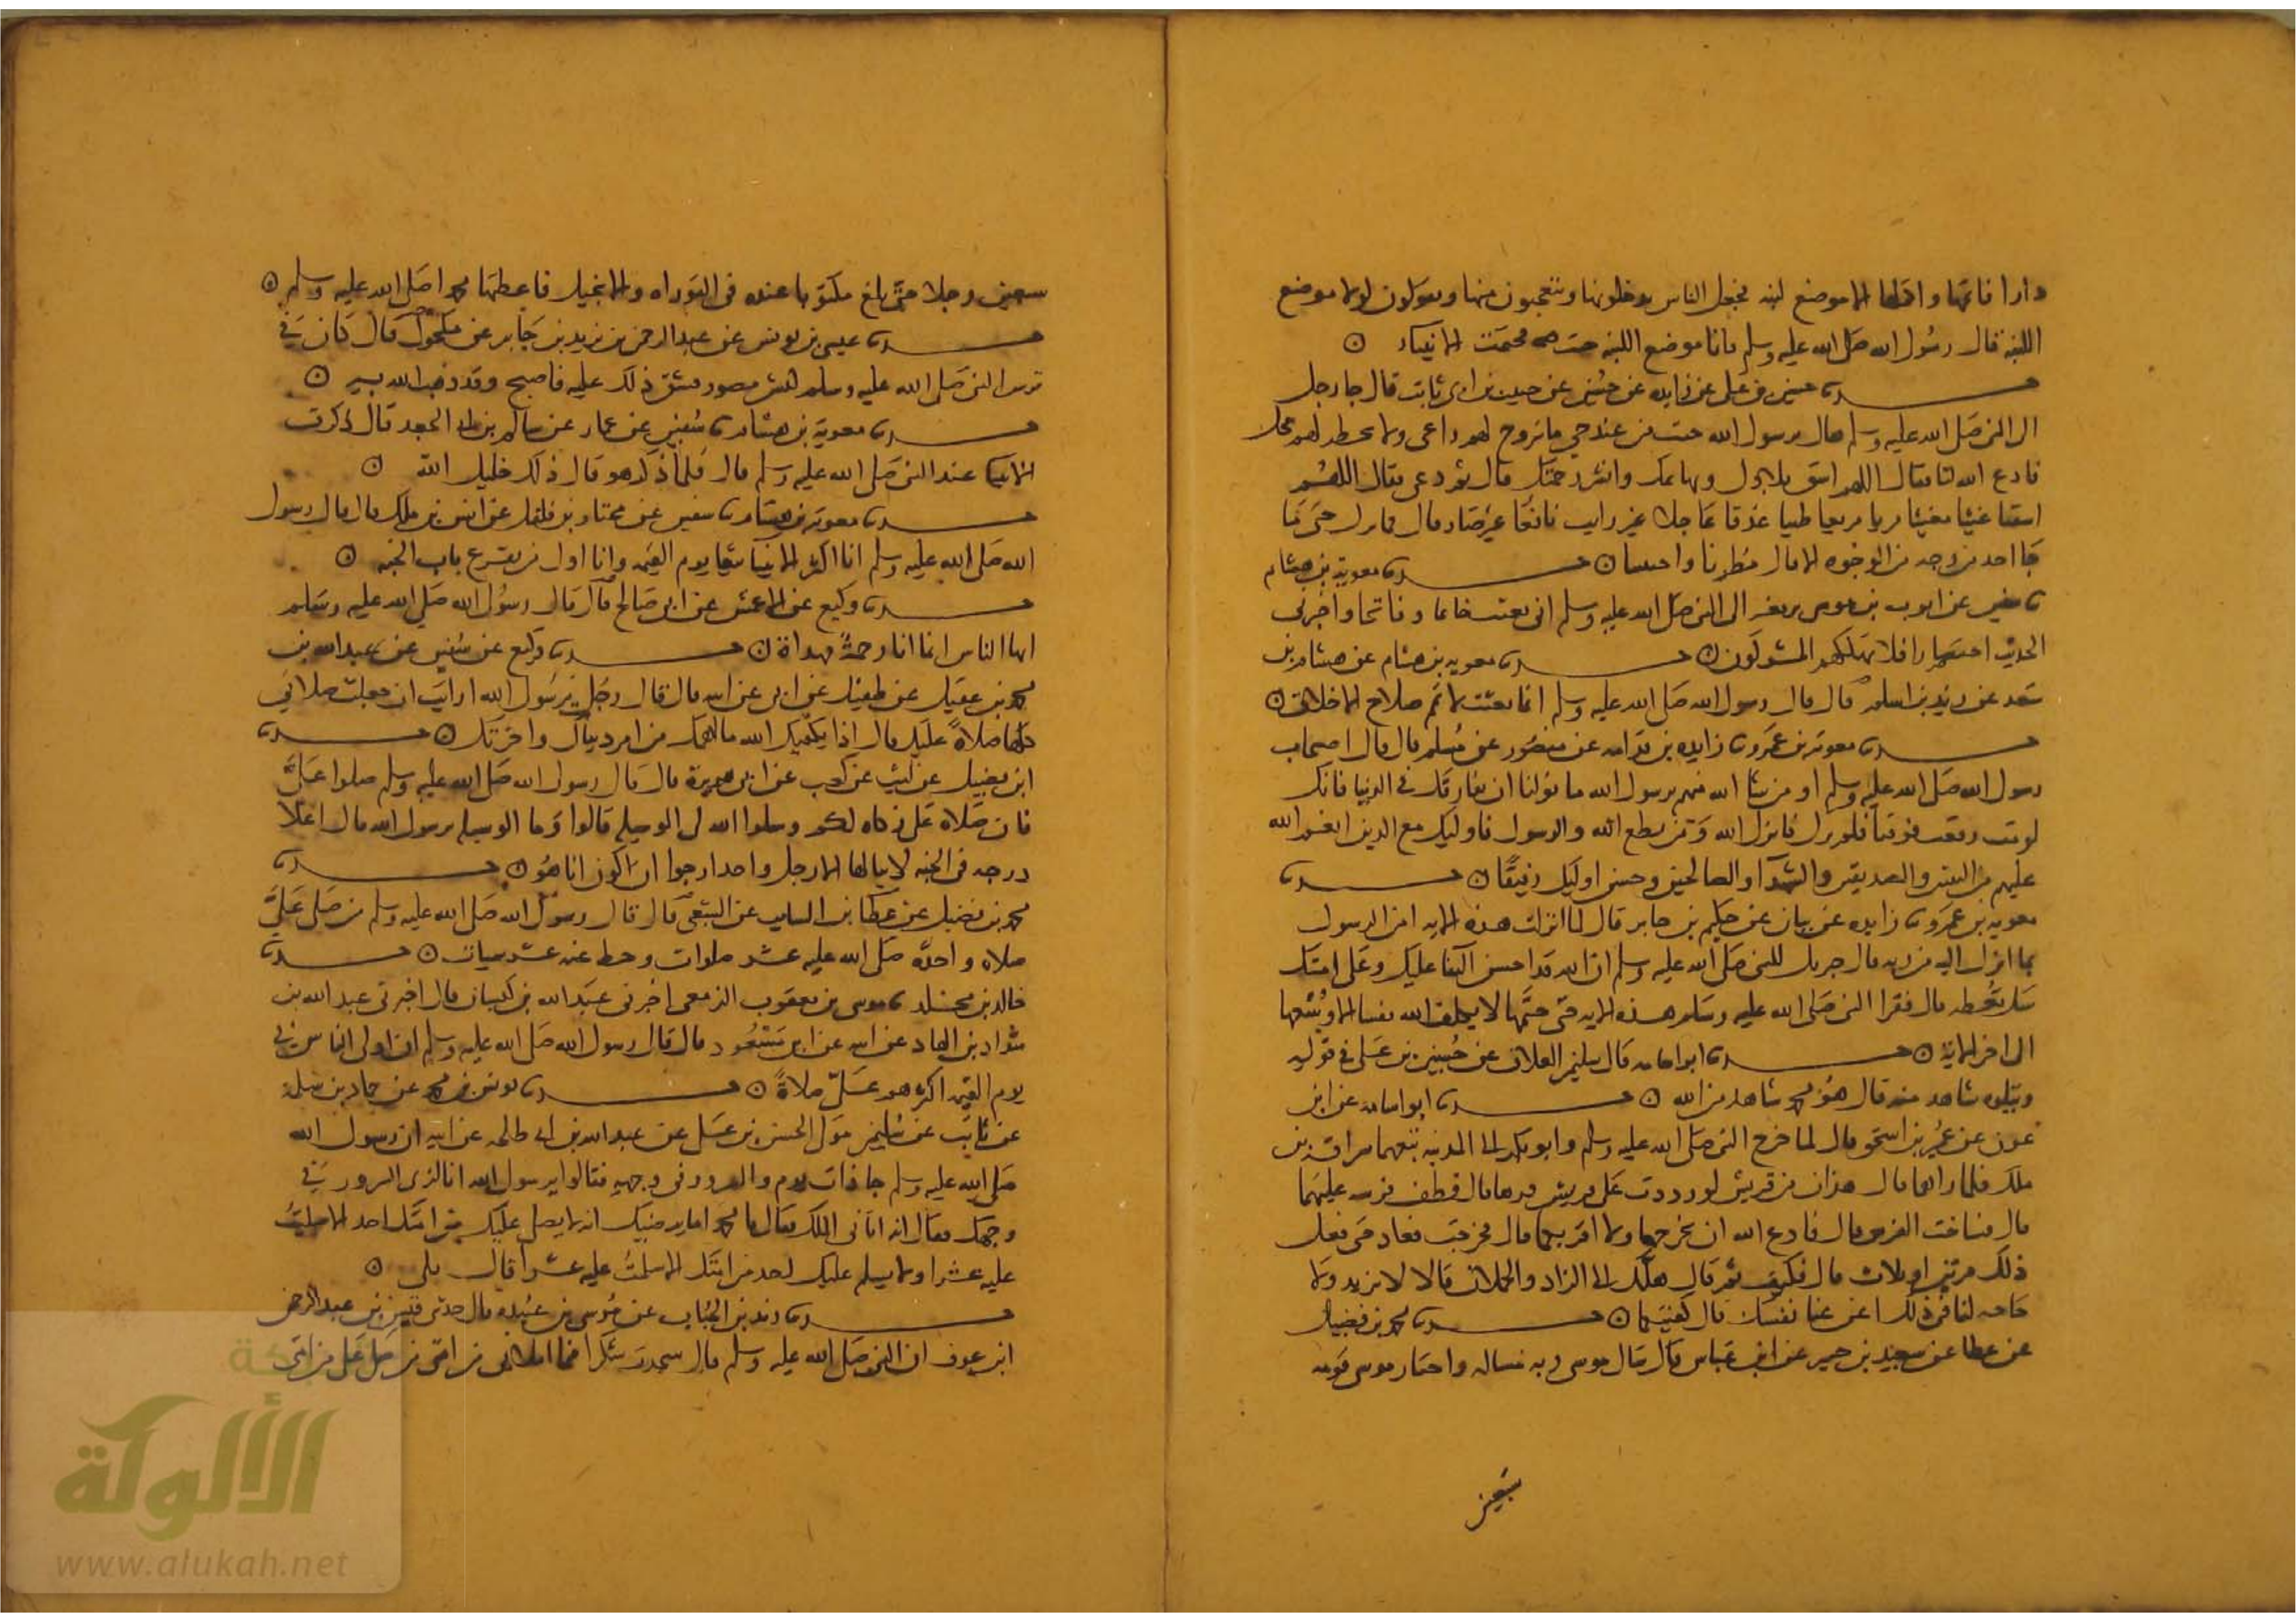 دارا فاتمها واكملها الا موضع لبنه فجعل الناس يدخلونها ويتعجبون منها ويعولون لولا موضع
اللبنه قال رسول الله صلى الله عليه وسلم فانا موضع اللبنه جئت فختمت الانبياء
حسين بن على عن زايده عن حصين عن حبيب بن ابى ثابت قال جا رجل
الى النبى صلى الله عليه وسلم فقال يرسول الله جئت من عند حي ما يتروح لهم راعى ولا يخطر لهم فحل
فادع الله لنا فقال اللهم اسق بلادك وبهائمك وانشر رحمتك قال ثم دعى فقال اللهم
اسقنا غيثا مغيثا مريا مريعا طبقا غدقا عاجلا غير رايث نافعا غير ضار قال فما نزل حتى ما
جا احد من وجه من الوجوه الا قال مطرنا واحيينا معوية بن هشام
سفين عن ايوب بن موسى يرفعه الى النبى صلى الله عليه وسلم انى بعثت خاتما وفاتحا واختصر لى
الحديث اختصارا فلا يهلكنكم المشركون معويه بن هشام عن هشام بن
سعد عن زيد بن اسلم قال قال رسول الله صلى الله عليه وسلم انما بعثت لاتمم صلاح الاخلاق
معوية بن عمرو زايده بن قدامه عن منصور عن مسلم قال قال اصحاب
رسول الله صلى الله عليه وسلم او من شا الله منهم يرسول الله ما ينبغى لنا ان نفارقك فى الدنيا فانك
لو مت رفعت فوقنا فلم نرك فانزل الله ومن يطع الله والرسول فاوليك مع الذين انعم الله
عليهم من النبيين والصديقين والشهدآ والصالحين وحسن اوليك رفيقا
معويه بن عمرو زايده عن بيان عن حكيم بن جابر قال لما انزلت هذه الايه امن الرسول
بما انزل اليه من ربه قال جبريل للنبى صلى الله عليه وسلم ان الله قد احسن الثنا عليك وعلى امتك
سل تعطه قال فقرا النبى صلى الله عليه وسلم هذه الايه حتى ختمها لا يكلف الله نفسا الا وسعها
الى اخر الاية ابو اسامه قال سليمن العلاف عن حسين بن على فى قوله
ويتلوه شاهد منه قال هو محمد شاهد من الله ابو اسامه عن ابن
عون عن عمير بن اسحق قال لما خرج النبى صلى الله عليه وسلم وابو بكر الى المدينه تبعهما سراقة بن
ملك فلما راهما قال هذان فر قريش لو رددت على قريش فرها قال فطف فرسه عليهما
قال فساخت الفرس قال فادع الله ان يخرجها ولا اقربكما قال فخرجت فعاد حتى فعل
ذلك مرتين او ثلاث قال فكف ثم قال هلمكا الى الزاد والحملان قالا لا نريد ولا
حاجه لنا فى ذلك اغن عنا نفسك قال كفيتكما محمد بن فضيل
عن عطا عن سعيد بن جبير عن ابن عباس قال سال موسى ربه مساله واختار موسى قومه
سبعين
سبعين رجلا حتى بلغ مكتوبا عنده فى التوراه والانجيل فاعطيها محمدا صلى الله عليه وسلم
عيسى بن يونس عن عبد الرحمن بن يزيد بن جابر عن مكحول قال كان فى
ترس النبى صلى الله عليه وسلم كبش مصور فشق ذلك عليه فاصبح وقد ذهب الله به
معوية بن هشام سفين عن عمار عن سالم بن ابى الجعد قال ذكرت
الانبيا عند النبى صلى الله عليه وسلم قال فلما ذكر هو قال ذلك خليل الله
معويه بن هشام سفين عن مختار بن فلفل عن انس بن ملك قال قال رسول
الله صلى الله عليه وسلم انا اكثر الانبيا تبعا يوم القيمه وانا اول من يقرع باب الجنه
وكيع عن الاعمش عن ابى صالح قال قال رسول الله صلى الله عليه وسلم
ايها الناس انما انا رحمة مهداة وكيع عن سفين عن عبد الله بن
محمد بن عقيل عن طفيل عن ابى عن ابيه قال قال رجل يرسول الله ارايت ان جعلت صلاتى
كلها صلاة عليك قال اذا يكفيك الله ما اهمك من امر دنياك واخرتك
ابن فضيل عن ليث عن كعب عن ابى هريرة قال قال رسول الله صلى الله عليه وسلم صلوا على
فان صلاة على زكاه لكم وسلوا الله لى الوسيله قالوا وما الوسيله يرسول الله قال اعلا
درجه فى الجنه لا ينالها الا رجل واحد ارجوا ان اكون انا هو
محمد بن فضيل عن عطا بن السايب عن الشعبى قال قال رسول الله صلى الله عليه وسلم من صلى على
صلاه واحده صلى الله عليه عشر صلوات وحط عنه عشر سيات
خالد بن مخلد موسى بن يعقوب الزمعى اخبرنى عبد الله بن كيسان قال اخبرنى عبد الله بن
شداد بن الهاد عن ابيه عن ابن مسعود قال قال رسول الله صلى الله عليه وسلم ان اولى الناس بى
يوم القيمه اكثرهم على صلاة يونس بن محمد عن حماد بن سلمة
عن ثابت عن سليمن مولى الحسن بن على عن عبد الله بن ابى طلحه عن ابيه ان رسول الله
صلى الله عليه وسلم جا ذات يوم والسرور فى وجهه فقالوا يرسول الله انا لنرى السرور فى
وجهك فقال انه اتانى الملك فقال يا محمد اما يرضيك انه لا يصلى عليك من امتك احد الا صليت
عليه عشرا ولا يسلم عليك احد من امتك الا سلمت عليه عشرا قال بلى
زيد بن الحباب عن موسى بن عبيده قال حدثنى قيس بن عبد الرحمن
ابن عوف ان النبى صلى الله عليه وسلم قال سجدت شكرا فيما ابلانى من امتى من صلى على من امتى
الألوكة
www.alukah.net